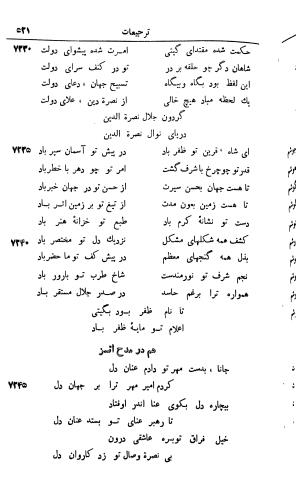 ترجیعات
۵۳۱
حکمت شده مقتدای گیتی امرت شده پیشوای دولت ۷۲۳۰
شاهان دگر جو حلقه بر در تو در کنف سرای دولت
این لفظ بود بگاه وبیگاه تسبیح جهان ، دعای دولت
یك لحظه مباد هیچ خالی از نصرة دین ، علای دولت
گردون جلال نصرة الدین
دریای نوال نصرة الدین
ای شاه قرین تو ظفر باد در پیش تو آسمان سپر باد ۷۲۳۵
قدر تو چو چرخ باشرف گشت امر تو چو دهر باخطر باد
تا هست جهان بحسن سیرت از حسن تو در جهان خبر باد
تا هست زمین بعون مدت از تیغ تو بر زمین اثر باد
دست تو نشانهٔ کرم باد طبع تو خزانهٔ هنر باد
کشف همه شکلهای مشکل نزدیك دل تو مختصر باد ۷۲۴۰
بذل همه گنجهای معظم در پیش کف تو ماحضر باد
نجم شرف تو نورمندست شاخ طرب تو بارور باد
همواره ترا برغم حاسد در صدر جلال مستقر باد
تا نام ظفر بود بگیتی
اعلام تو مایهٔ ظفر باد
هم در مدح اتسز
جانا ، بدست مهر تو دادم عنان دل
کردم امیر مهر ترا بر جهان دل ۷۲۴۵
بیچاره دل بکوی عنا اندر اوفتاد
تا رهبر عنای تو بستد عنان دل
خیل فراق تو بسره عاشقی درون
بی نصرة وصال تو زد کاروان دل